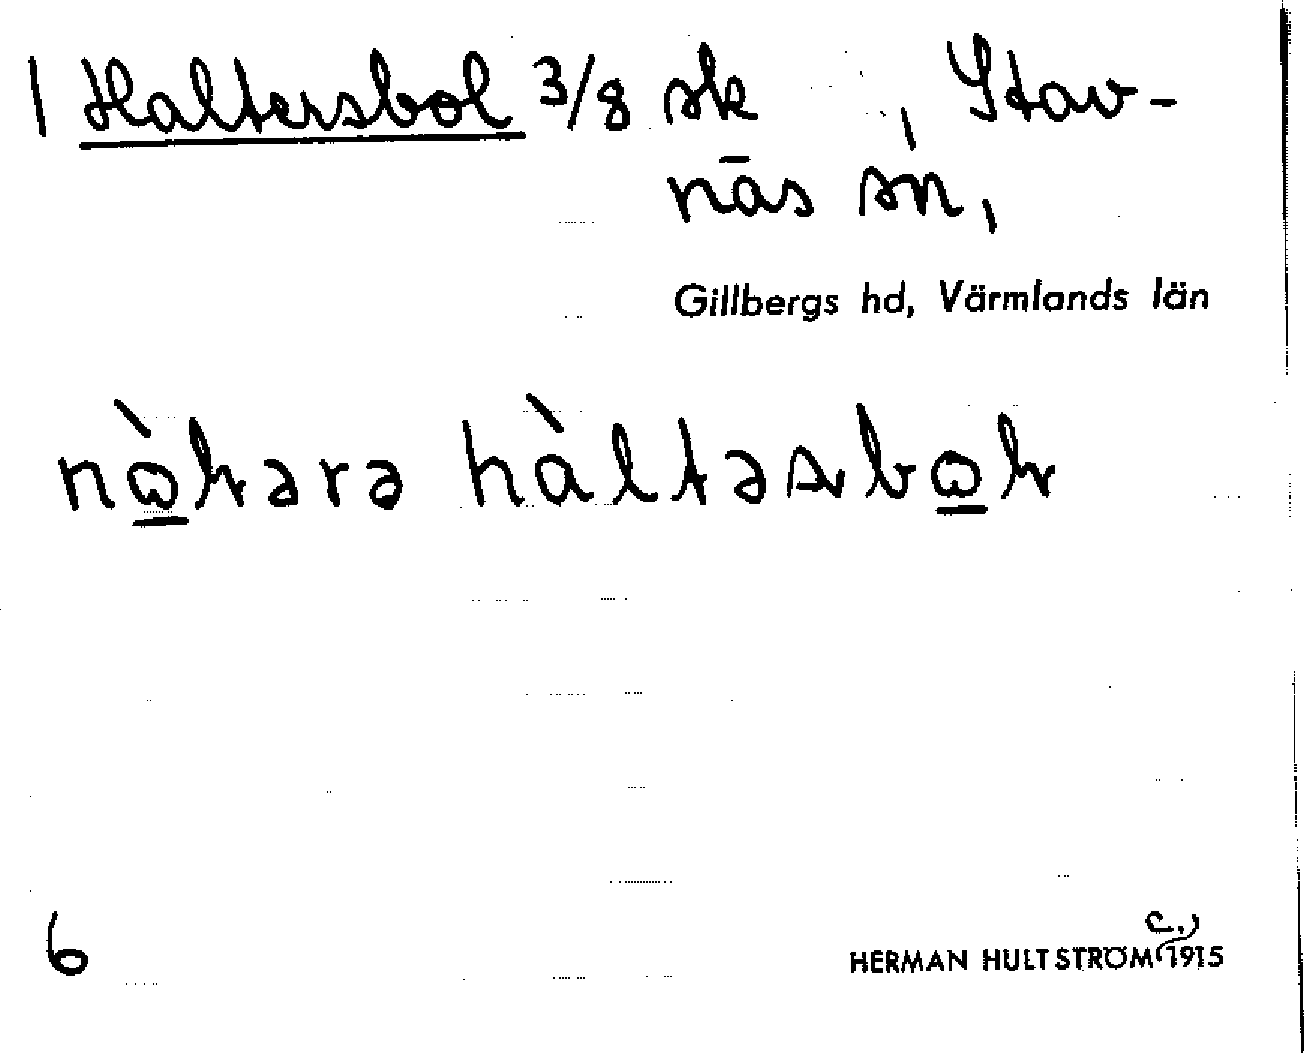 1 Haltersbol 3/8 sk , Stav-
näs sn,
Gillbergs hd, Värmlands län
6
c.,
HERMAN HULTSTRÖM 1915